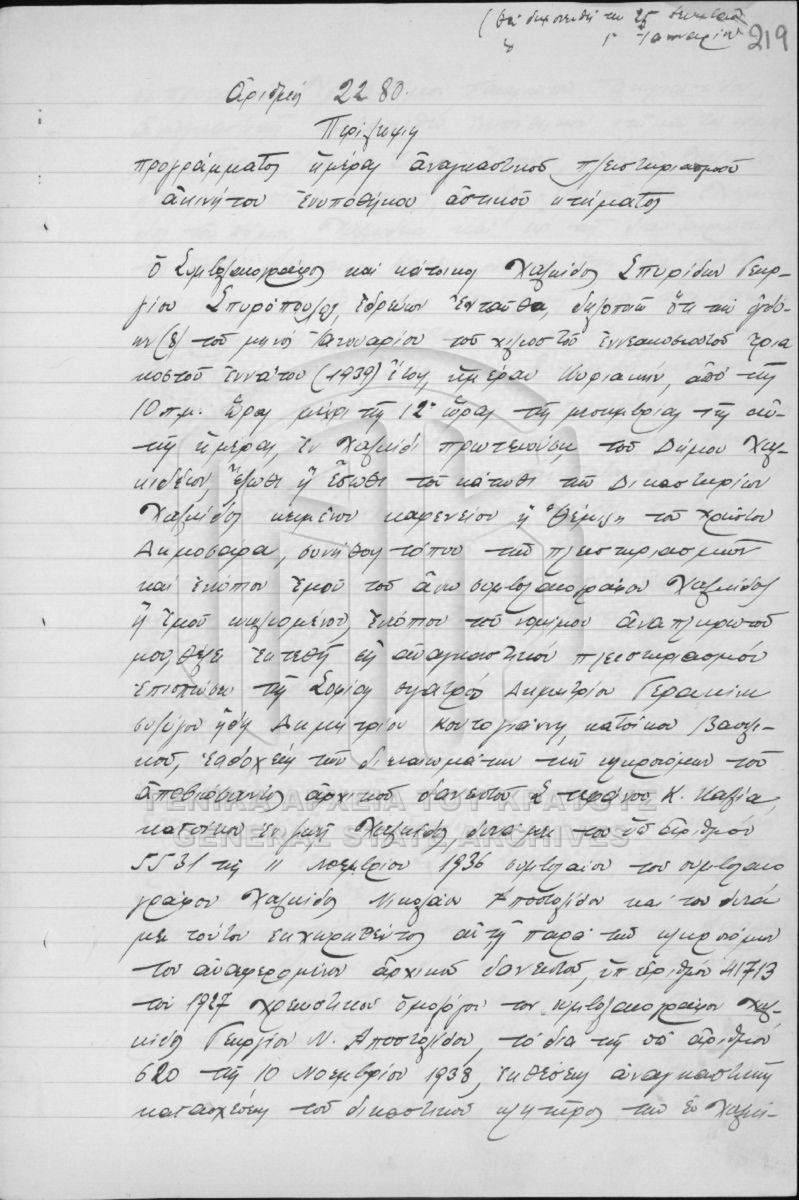 (θα δημοσιευθή την 25
Ιανουαρίου
219
Αριθμός 2280.
Περίληψις
προγράμματος ημέρας αναγκαστικού πλειστηριασμού
ακινήτου ενυποθήκου αστικού κτήματος
Ο Συμβολαιογράφος και κάτοικος Χαλκίδος Σπυρίδων Γεωρ-
γίου Σπυρόπουλος, εδρεύων ενταύθα, δηλοποιώ ότι την ογδό-
ην (8) του μηνός Ιανουαρίου του χιλιοστού εννεακοσιοστού τρια
κοστού εννάτου (1939) έτους, ημέραν Κυριακήν, από της
10 π.μ. ώρας μέχρι της 12ης ώρας της μεσημβρίας της αυ-
της ημέρας, εν Χαλκίδι πρωτευούση του Δήμου Χαλ-
κιδέων, έξωθι ή έσωθι του κάτωθι των Δικαστηρίων
Χαλκίδος κειμένου καφενείου η Θέμις του Χρήστου
Δημοσάρα, συνήθους τόπου των πλειστηριασμών
και ενώπιον εμού του άνω συμβολαιογράφου Χαλκίδος
ή εμού κωλυομένου, ενώπιον του νομίμου αναπληρωτού
μου, θέλει εκτεθή εις αναγκαστικόν πλειστηριασμόν
επισπεύσει της Σοφίας θυγατρός Δημητρίου Γεράκινη
συζύγου ήδη Δημητρίου Κοντογιάννη, κατοίκου Βασιλι-
κού, εκδοχέως των δικαιωμάτων των κληρονόμων του
αποβιώσαντος αρχικού δανειστού Στεφάνου Κ. Καζία,
κατοίκου εν ζωή Χαλκίδος, δυνάμει του υπ' αριθμόν
5531 της 11 Νοεμβρίου 1936 συμβολαίου του συμβολαιο
γράφου Χαλκίδος Νικολάου Αποστολίδου και του δυνά
μει τούτου εκχωρηθέντος αυτή παρά των κληρονόμων
του αναφερομένου αρχικού δανειστού, υπ' αριθμόν 41713
του 1927 χρεωστικού ομολόγου του συμβολαιογράφου Χαλ-
κίδος Γεωργίου Ν. Αποστολίδου, το δια της υπ' αριθμόν
620 της 10 Νοεμβρίου 1938, εκθέσεως αναγκαστικής
κατασχέσεως του δικαστικού κλητήρος των εν Χαλκί-
ΓΕΝΙΚΑ ΑΡΧΕΙΑ ΤΟΥ ΚΡΑΤΟΥΣ
GENERAL STATE ARCHIVES